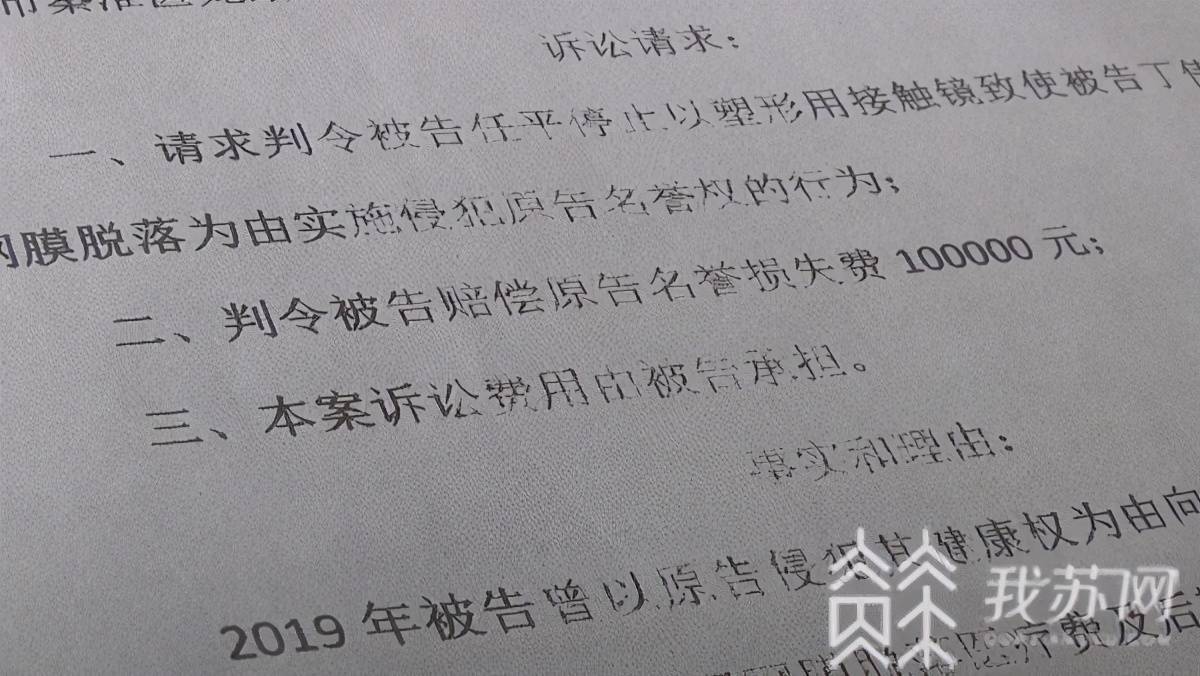 市秦淮区
诉讼请求：
一、请求判令被告任平停止以塑形用接触镜致使被告丁
内膜脱落为由实施侵犯原告名誉权的行为；
二、判令被告赔偿原告名誉损失费 100000 元；
三、本案诉讼费用由被告承担。
事实和理由：
2019 年被告曾以原告侵犯其健康权为由向
医疗费及后
我苏网